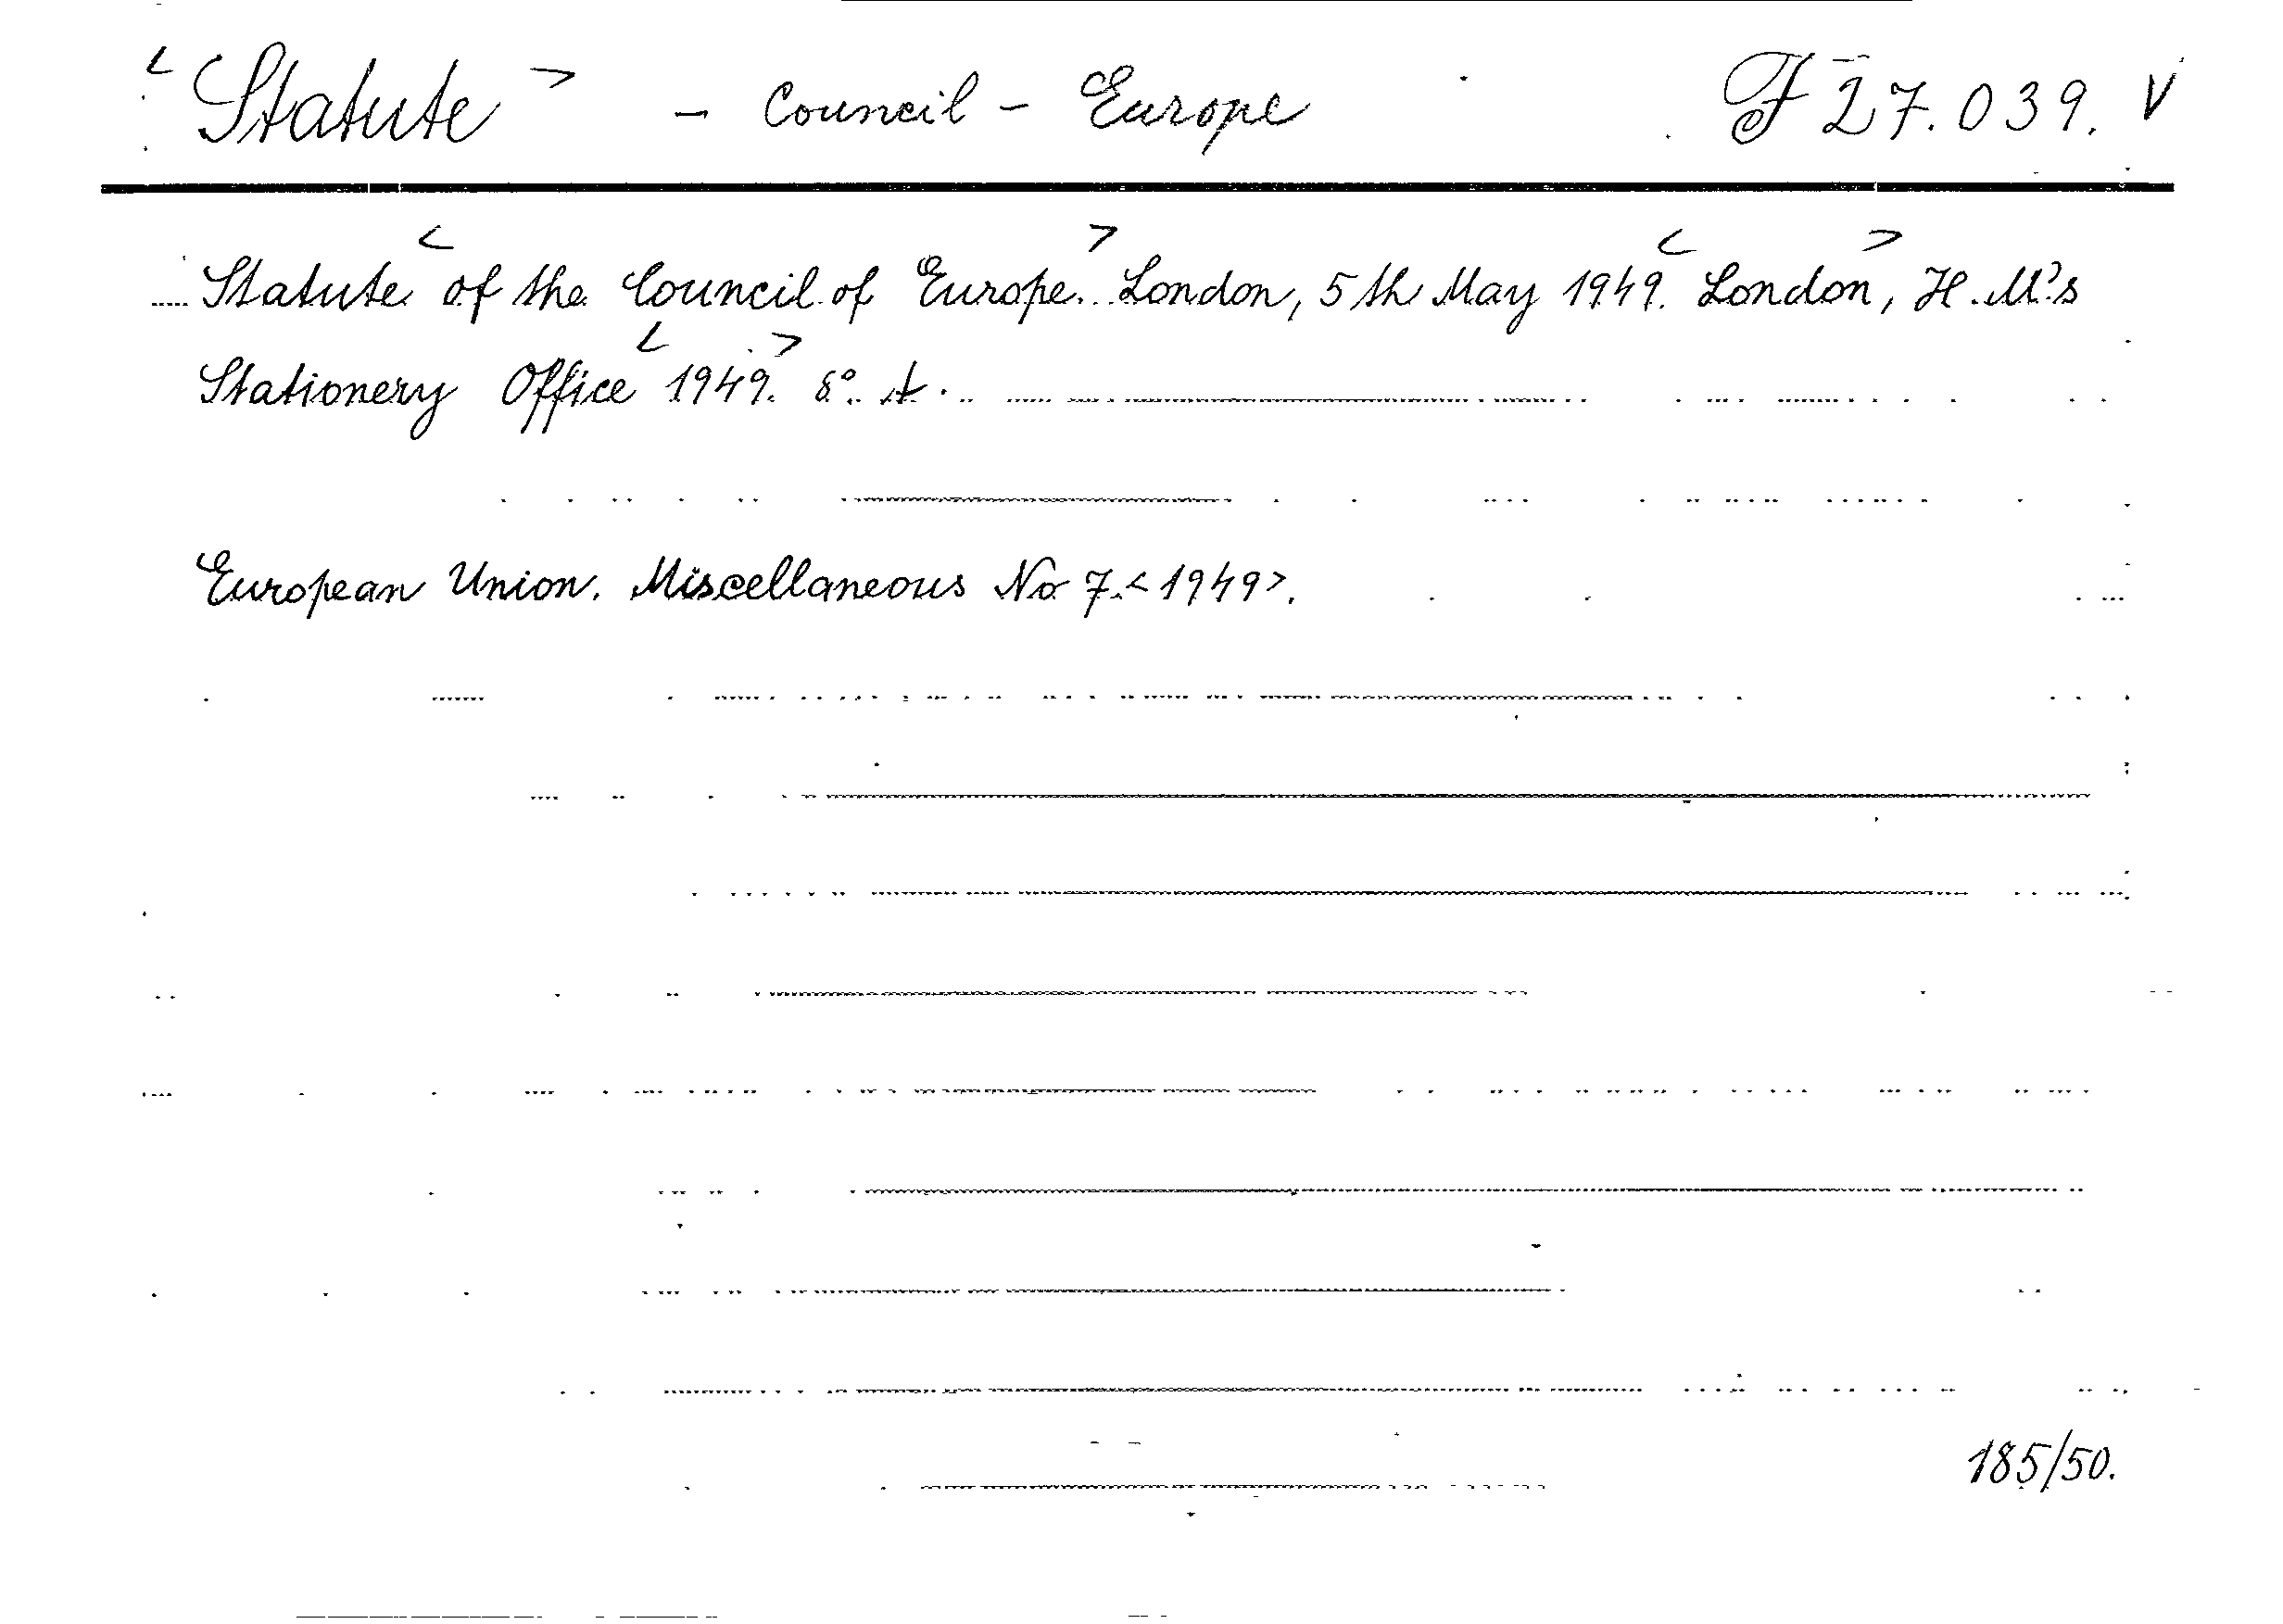 <Statute> - Council - Europe F 27.039. V
Statute <of the Council of Europe.> London, 5th May 1949. <London>, H.M.'s
Stationery Office <1949.> 8°.
European Union. Miscellaneous No 7.<1949>.
185/50.